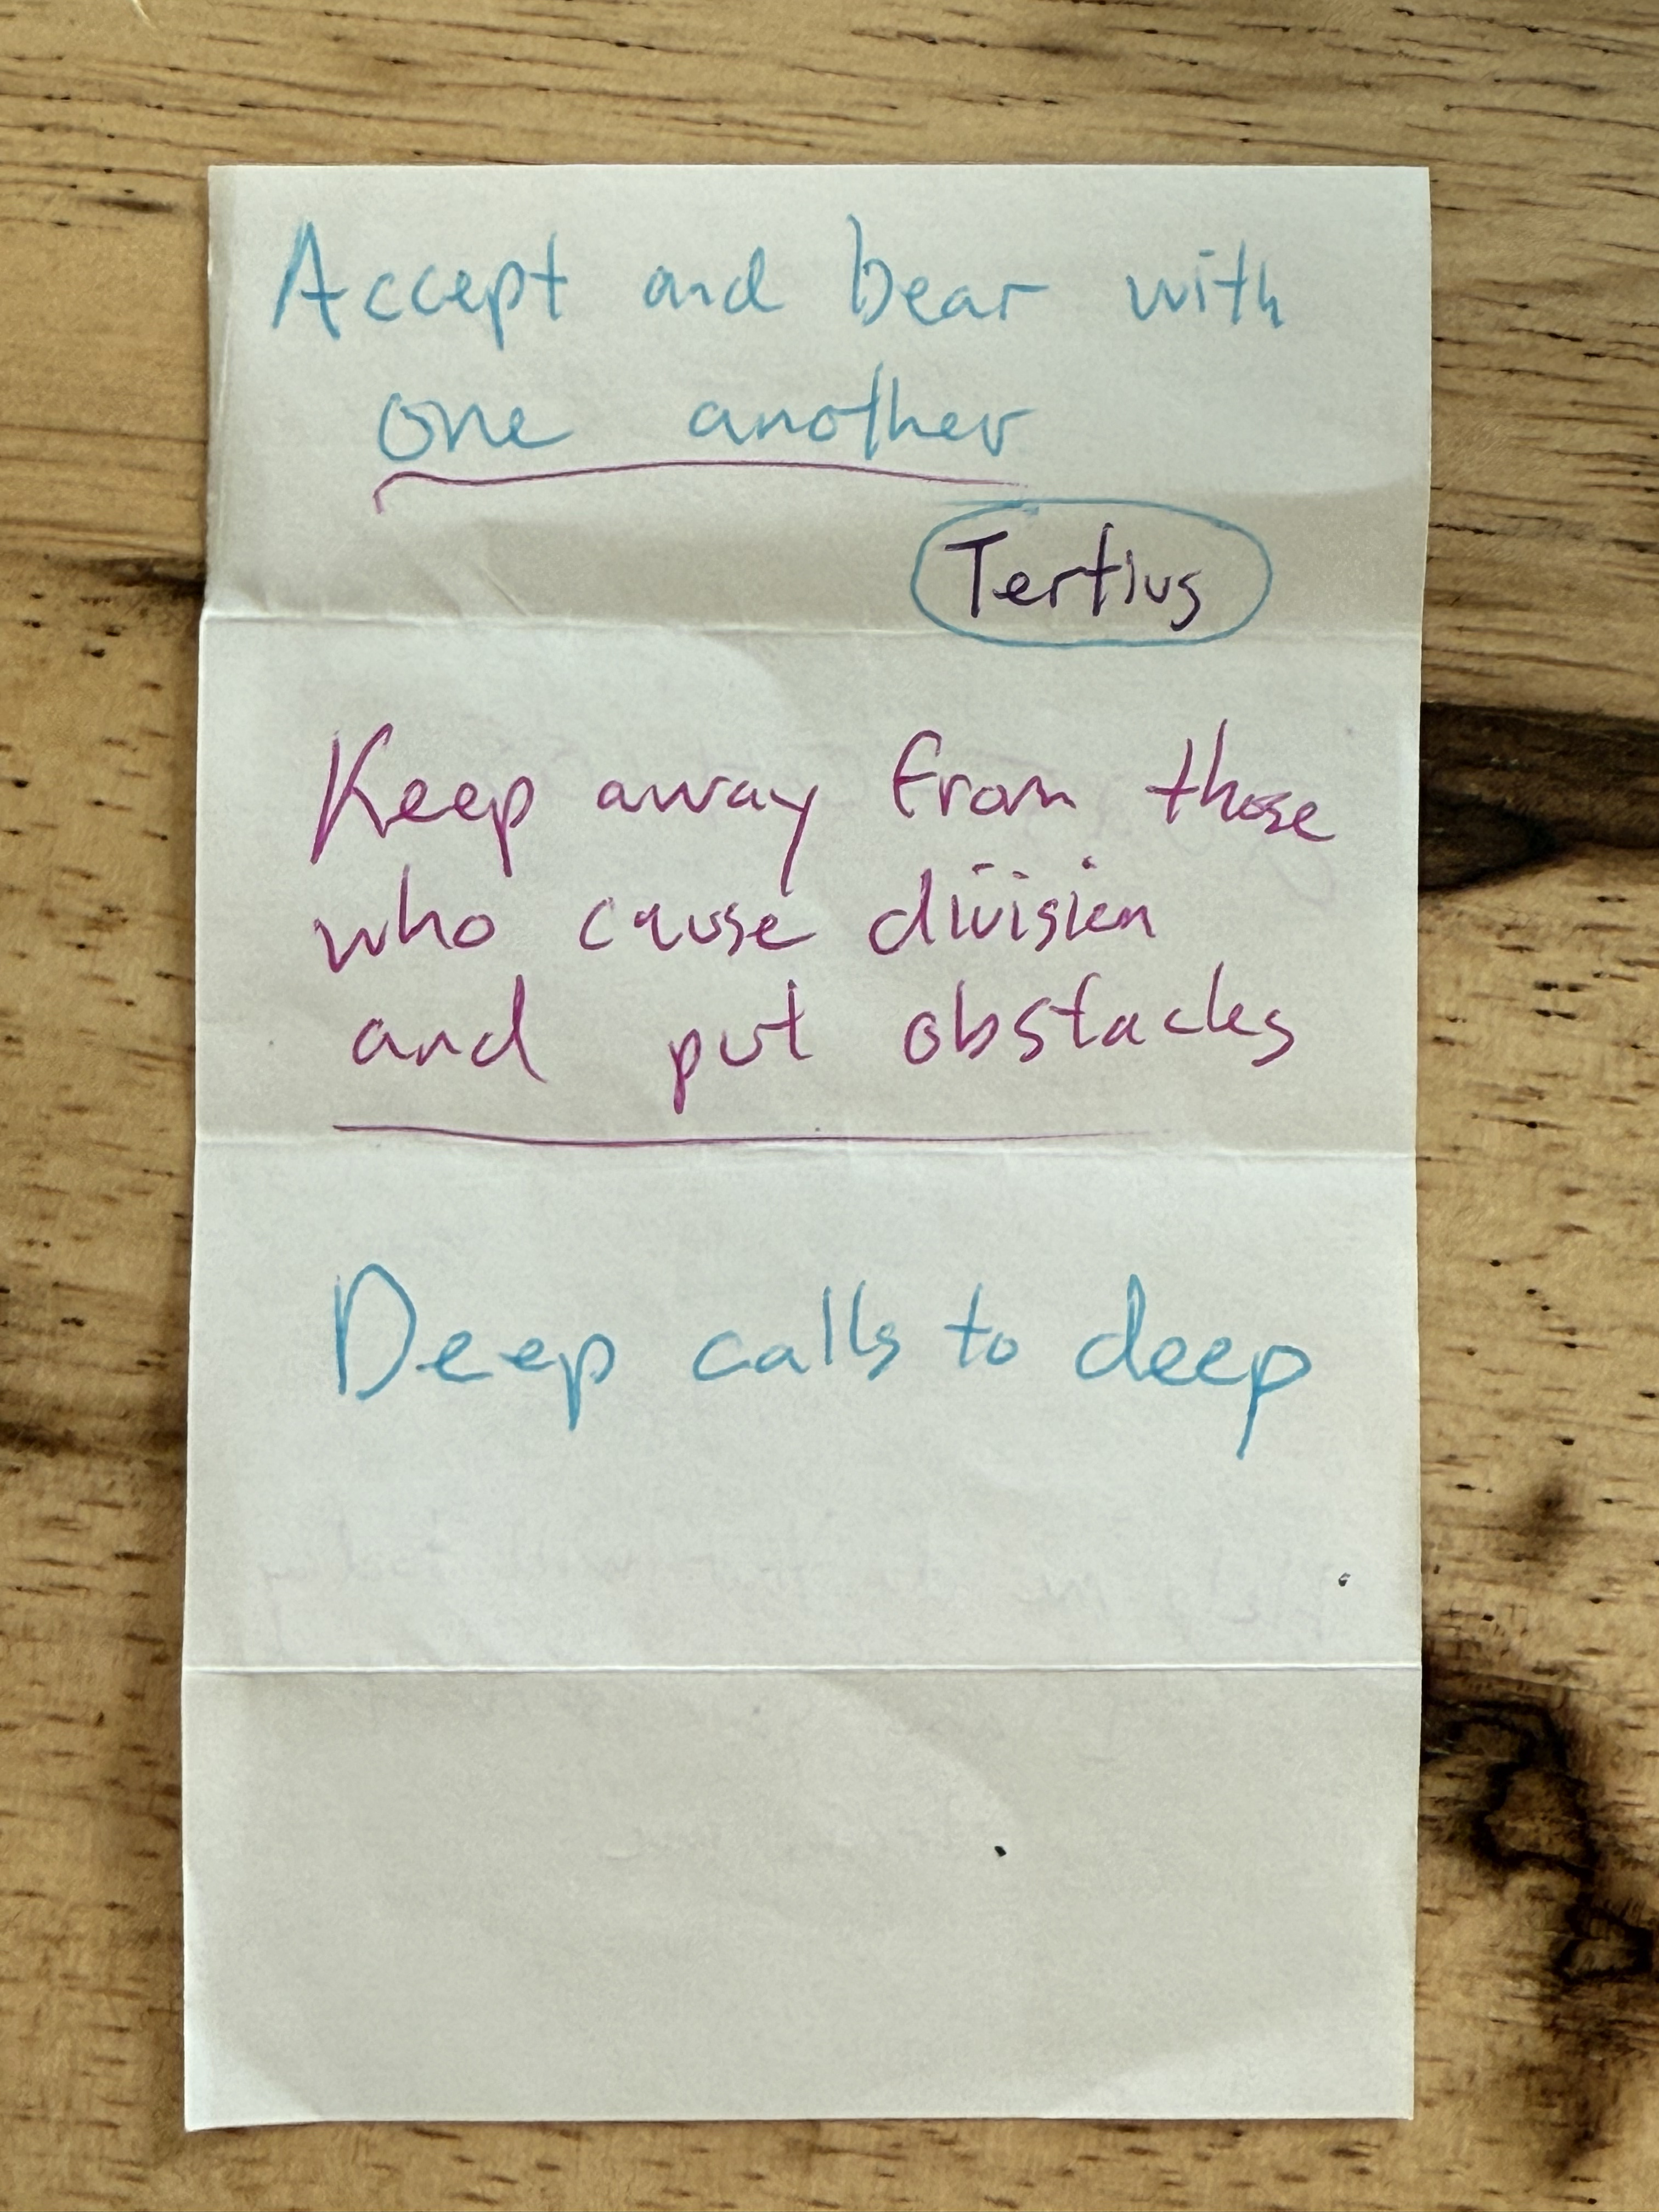 Accept and bear with
one another
Tertius
Keep away from those
who cause division
and put obstacles
Deep calls to deep